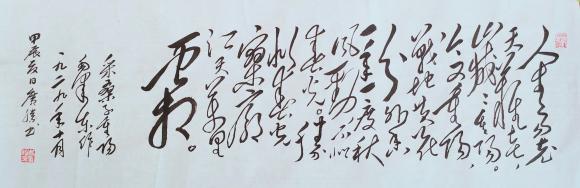 人生易老
天难老,
岁岁重阳。
今又重阳,
战地黄花
分外香
一年一度秋
风劲不似
春光。胜
似春光
寥廓
江天万里
霜。
采桑子重阳
毛泽东作
一九二九年十月
甲辰夏日